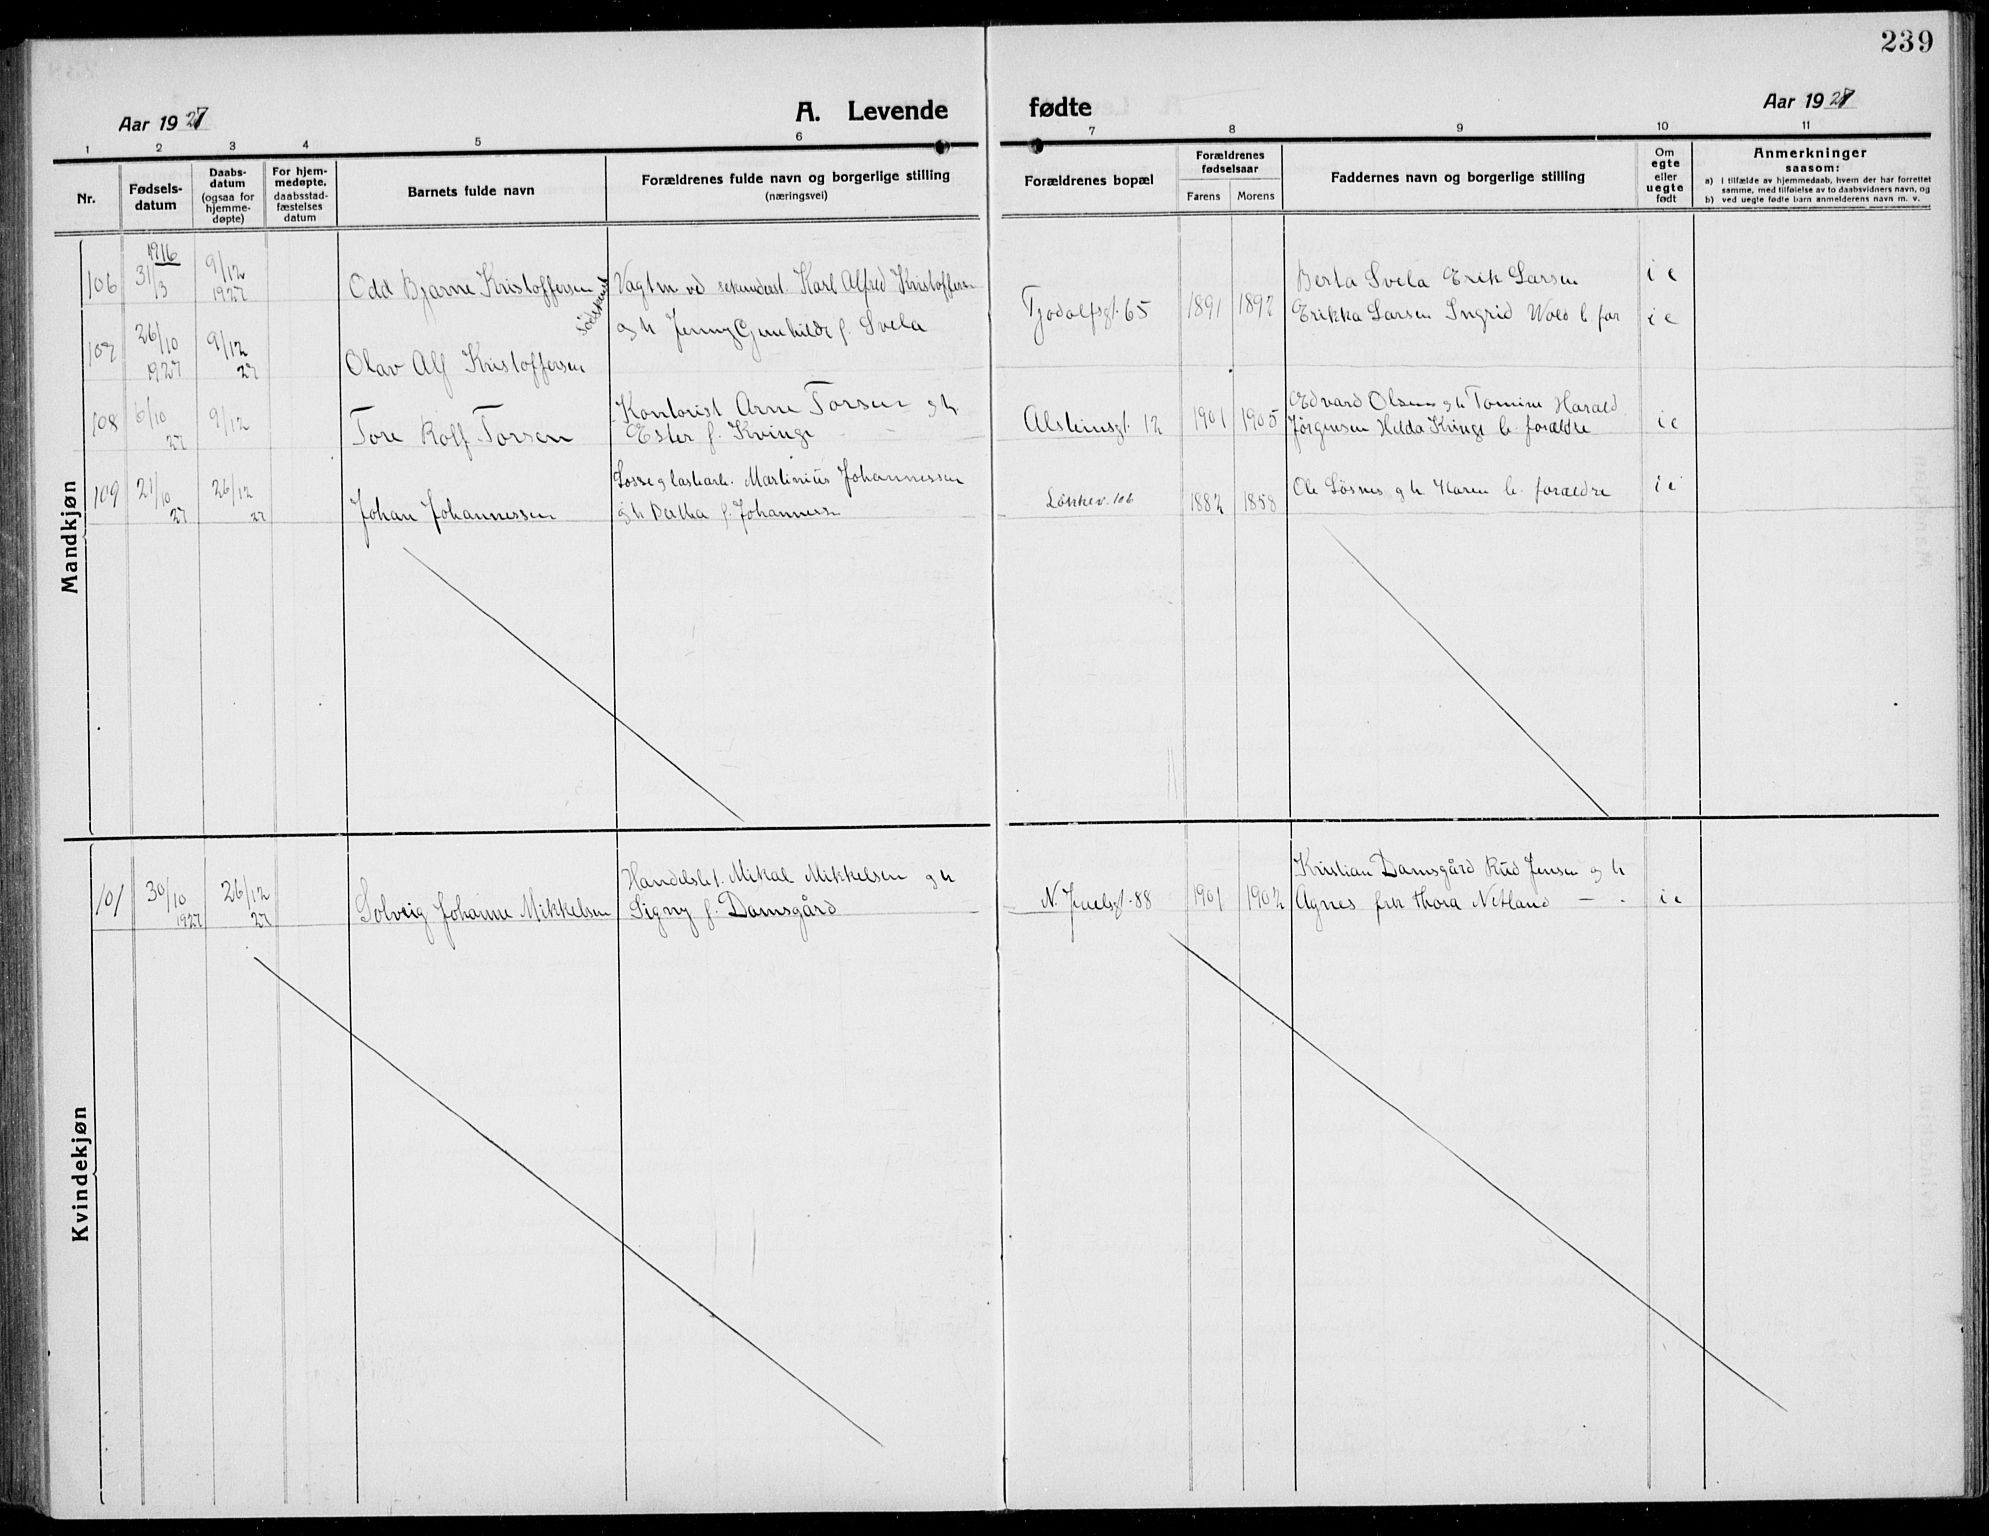 239
Aar 1927
A. Levende fødte
Aar 1927
1 2 3 4 5 6 7 8 9 10 11
Nr.
Fødsels-
datum
Daabs-
datum
(ogsaa for
hjemme-
døpte)
For hjem-
medøpte,
daabsstad-
fæstelses
datum
Barnets fulde navn
Forældrenes fulde navn og borgerlige stilling
(næringsvei)
Forældrenes bopæl
Forældrenes
fødselsaar
Farens Morens
Faddernes navn og borgerlige stilling
Om
egte
eller
uegte
født
Anmerkninger
saasom:
a) i tilfælde av hjemmedaab, hvem der har forrettet
samme, med tilføielse av to daabsvidners navn, og
b) ved uegte fødte barn anmelderens navn m. v.
Mandkjøn
106 1916 31/3 9/12 1927 Odd Bjarne Kristoffersen Vagtm. ved Karl Alfred Kristoffersen
og h Jenny Gunhilde f. Svela
Tjodolfsgt. 65 1891 1892 Berta Svela Erik Larsen i e
Erikka Larsen Ingrid b. for i e
107 26/10 1927 9/12 27 Olav Alf Kristoffersen
108 6/10 27 9/12 Tore Rolf Torsen Kontorist Arne Torsen og h.
Ester f. Kvinge
Alsteinsgt. 12 1901 1905 Edvard Olsen og h Tomine Harald
Jörgensen Hilda Kvinge b. forældre i e
109 21/10 27 26/12 27 Johan Johannessen Losse og lastearb. Martinius Johannessen
og h Bertha f. Johannessen
Lökkev. 106 1882 1858 Ole Lösnes og h. Karen b. forældre i e
Kvindekjøn
101 30/10 1927 26/12 27 Solveig Johanne Mikkelsen Handelsb. Mikal Mikkelsen og h
Signy f. Damsgård
N. Juelsgt. 88 1901 1902 Kristian Damsgård Rud Jensen og h
Agnes frk Thora Netland i e